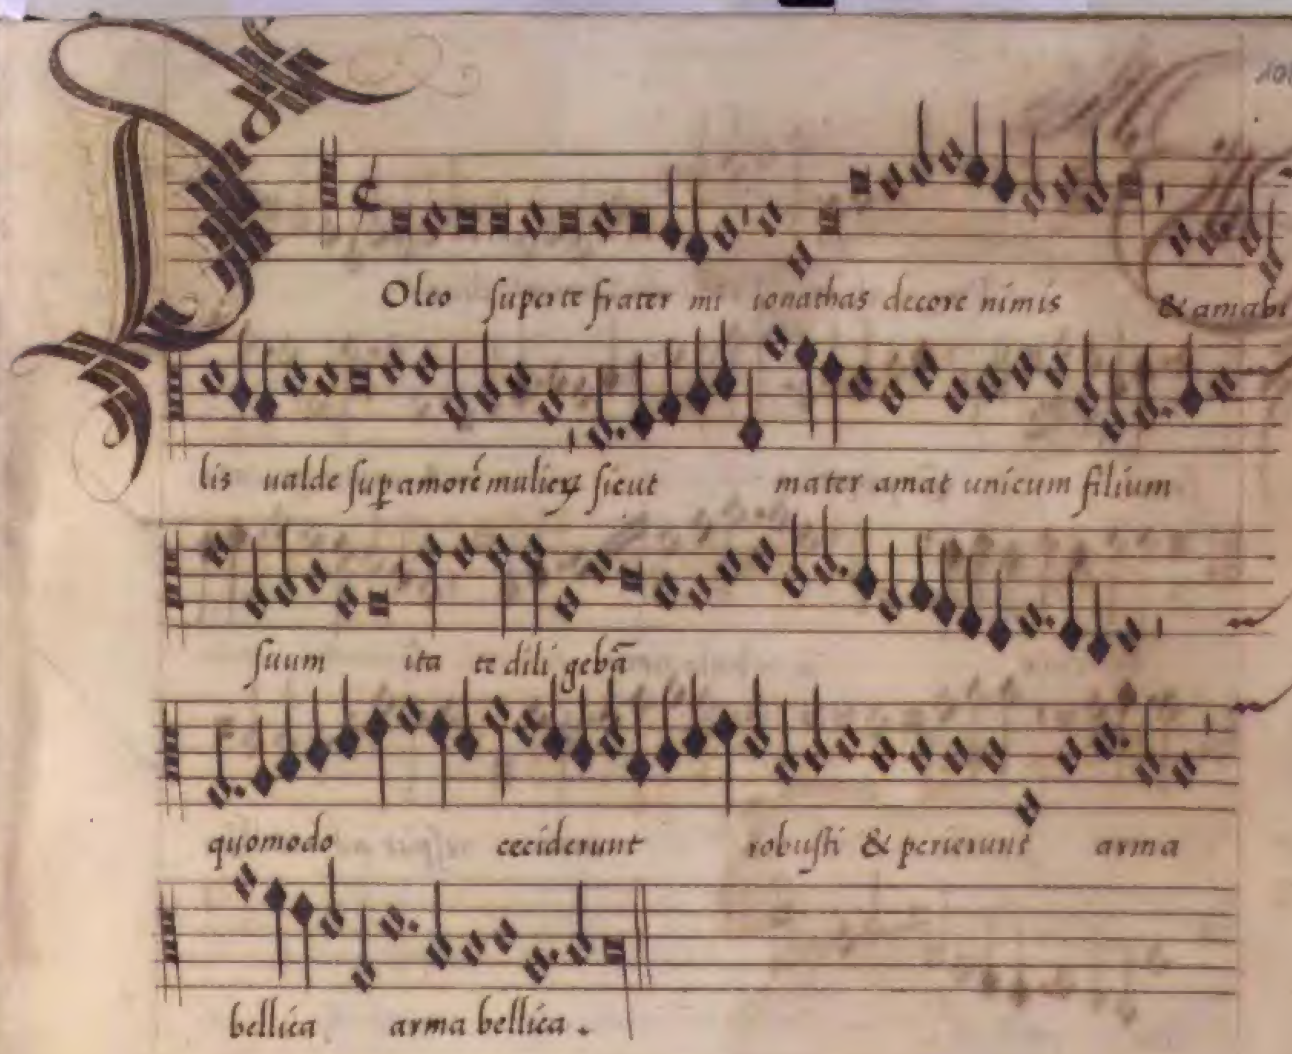 DOleo super te frater mi ionathas decore nimis & amabi
lis ualde sup amorē mulierꝝ sicut mater amat unicum filium
suum ita te dili gebā
quomodo ceciderunt robusti & perierunt arma
bellica arma bellica.